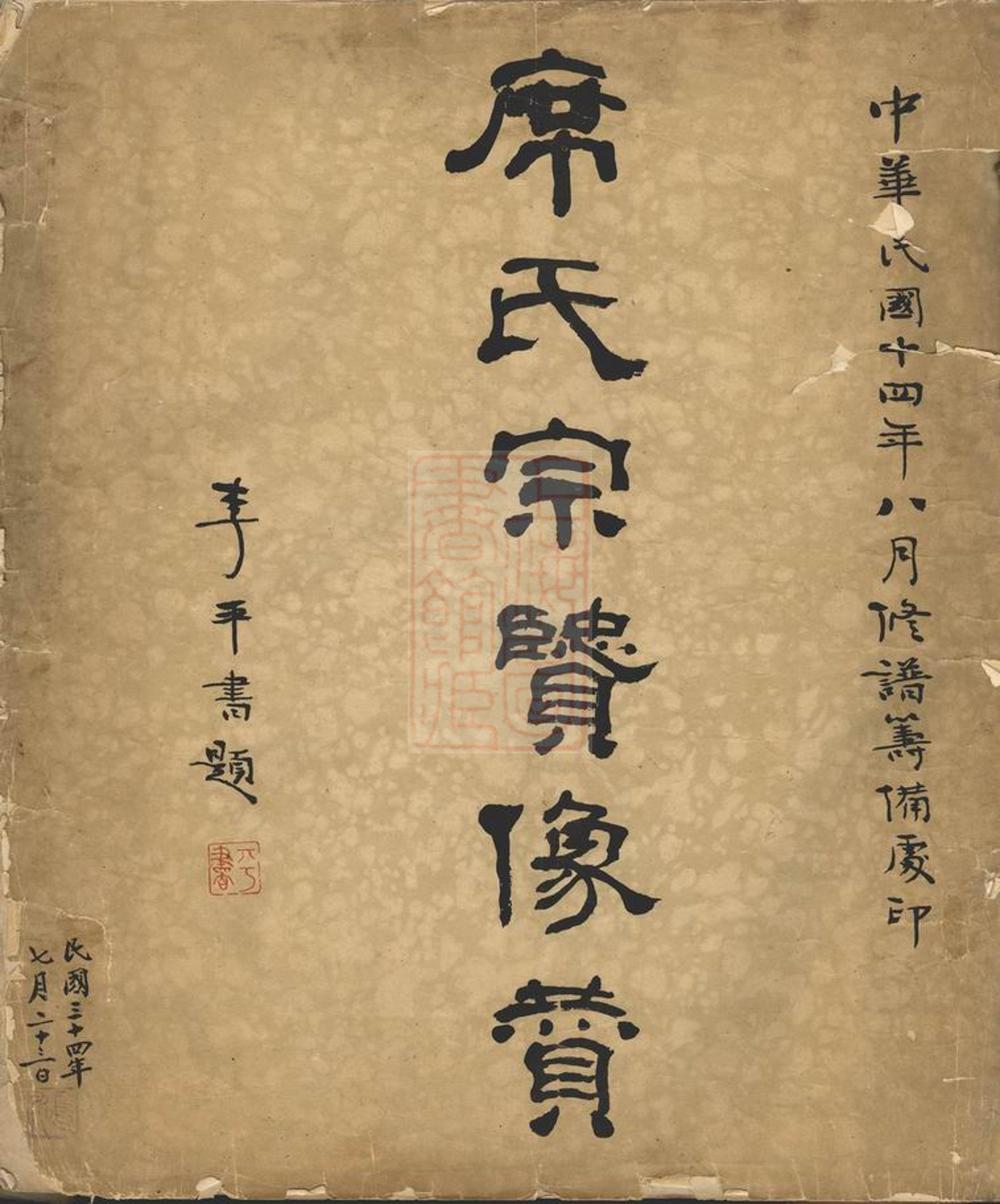 中華民國十四年八月修譜籌備處印
席氏宗贒像贊
李平書題
民國三十四年
七月二十三日